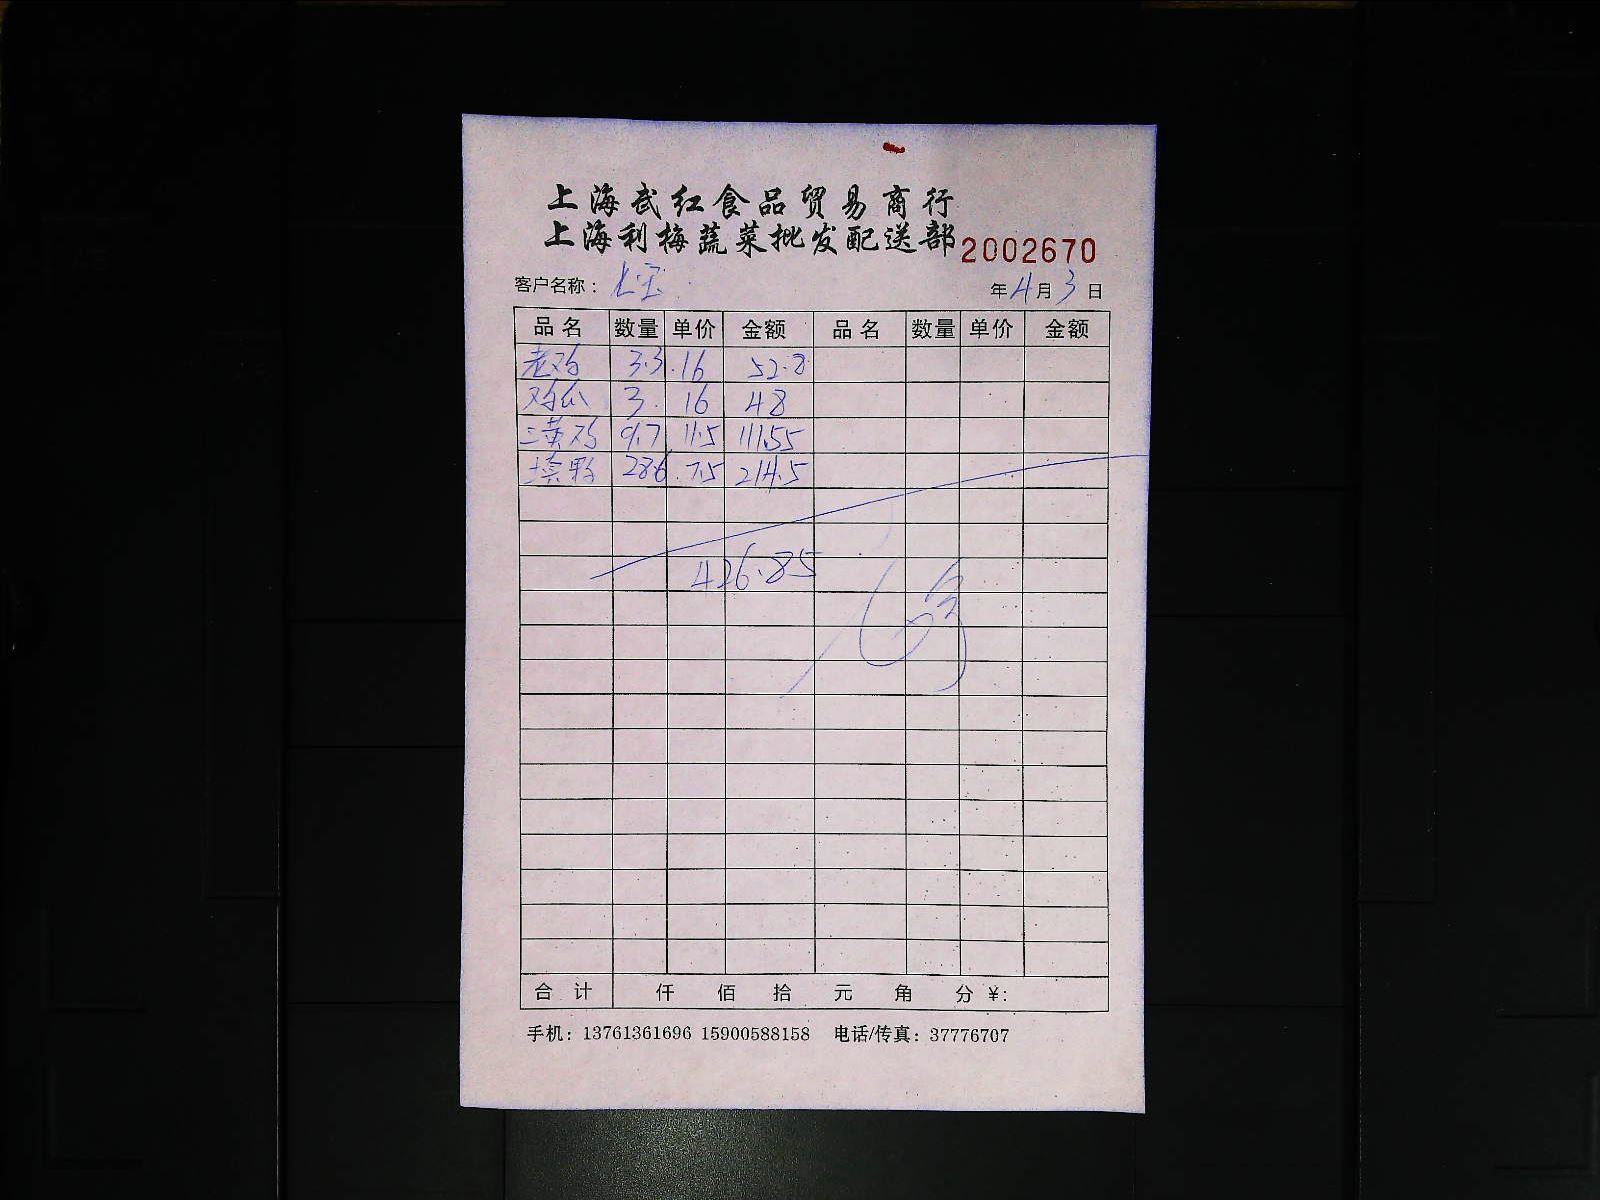 上海武红食品贸易商行
上海利梅蔬菜批发配送部 2002670
客户名称： 年 4 月 3 日
品名 数量 单价 金额 品名 数量 单价 金额
老鸡 3.3 16 52.8
鸡爪 3 16 48
三黄鸡 9.7 11.5 111.55
28.6 7.5 214.5
426.85
合计 仟 佰 拾 元 角 分 ¥:
手机：13761361696 15900588158 电话/传真：37776707